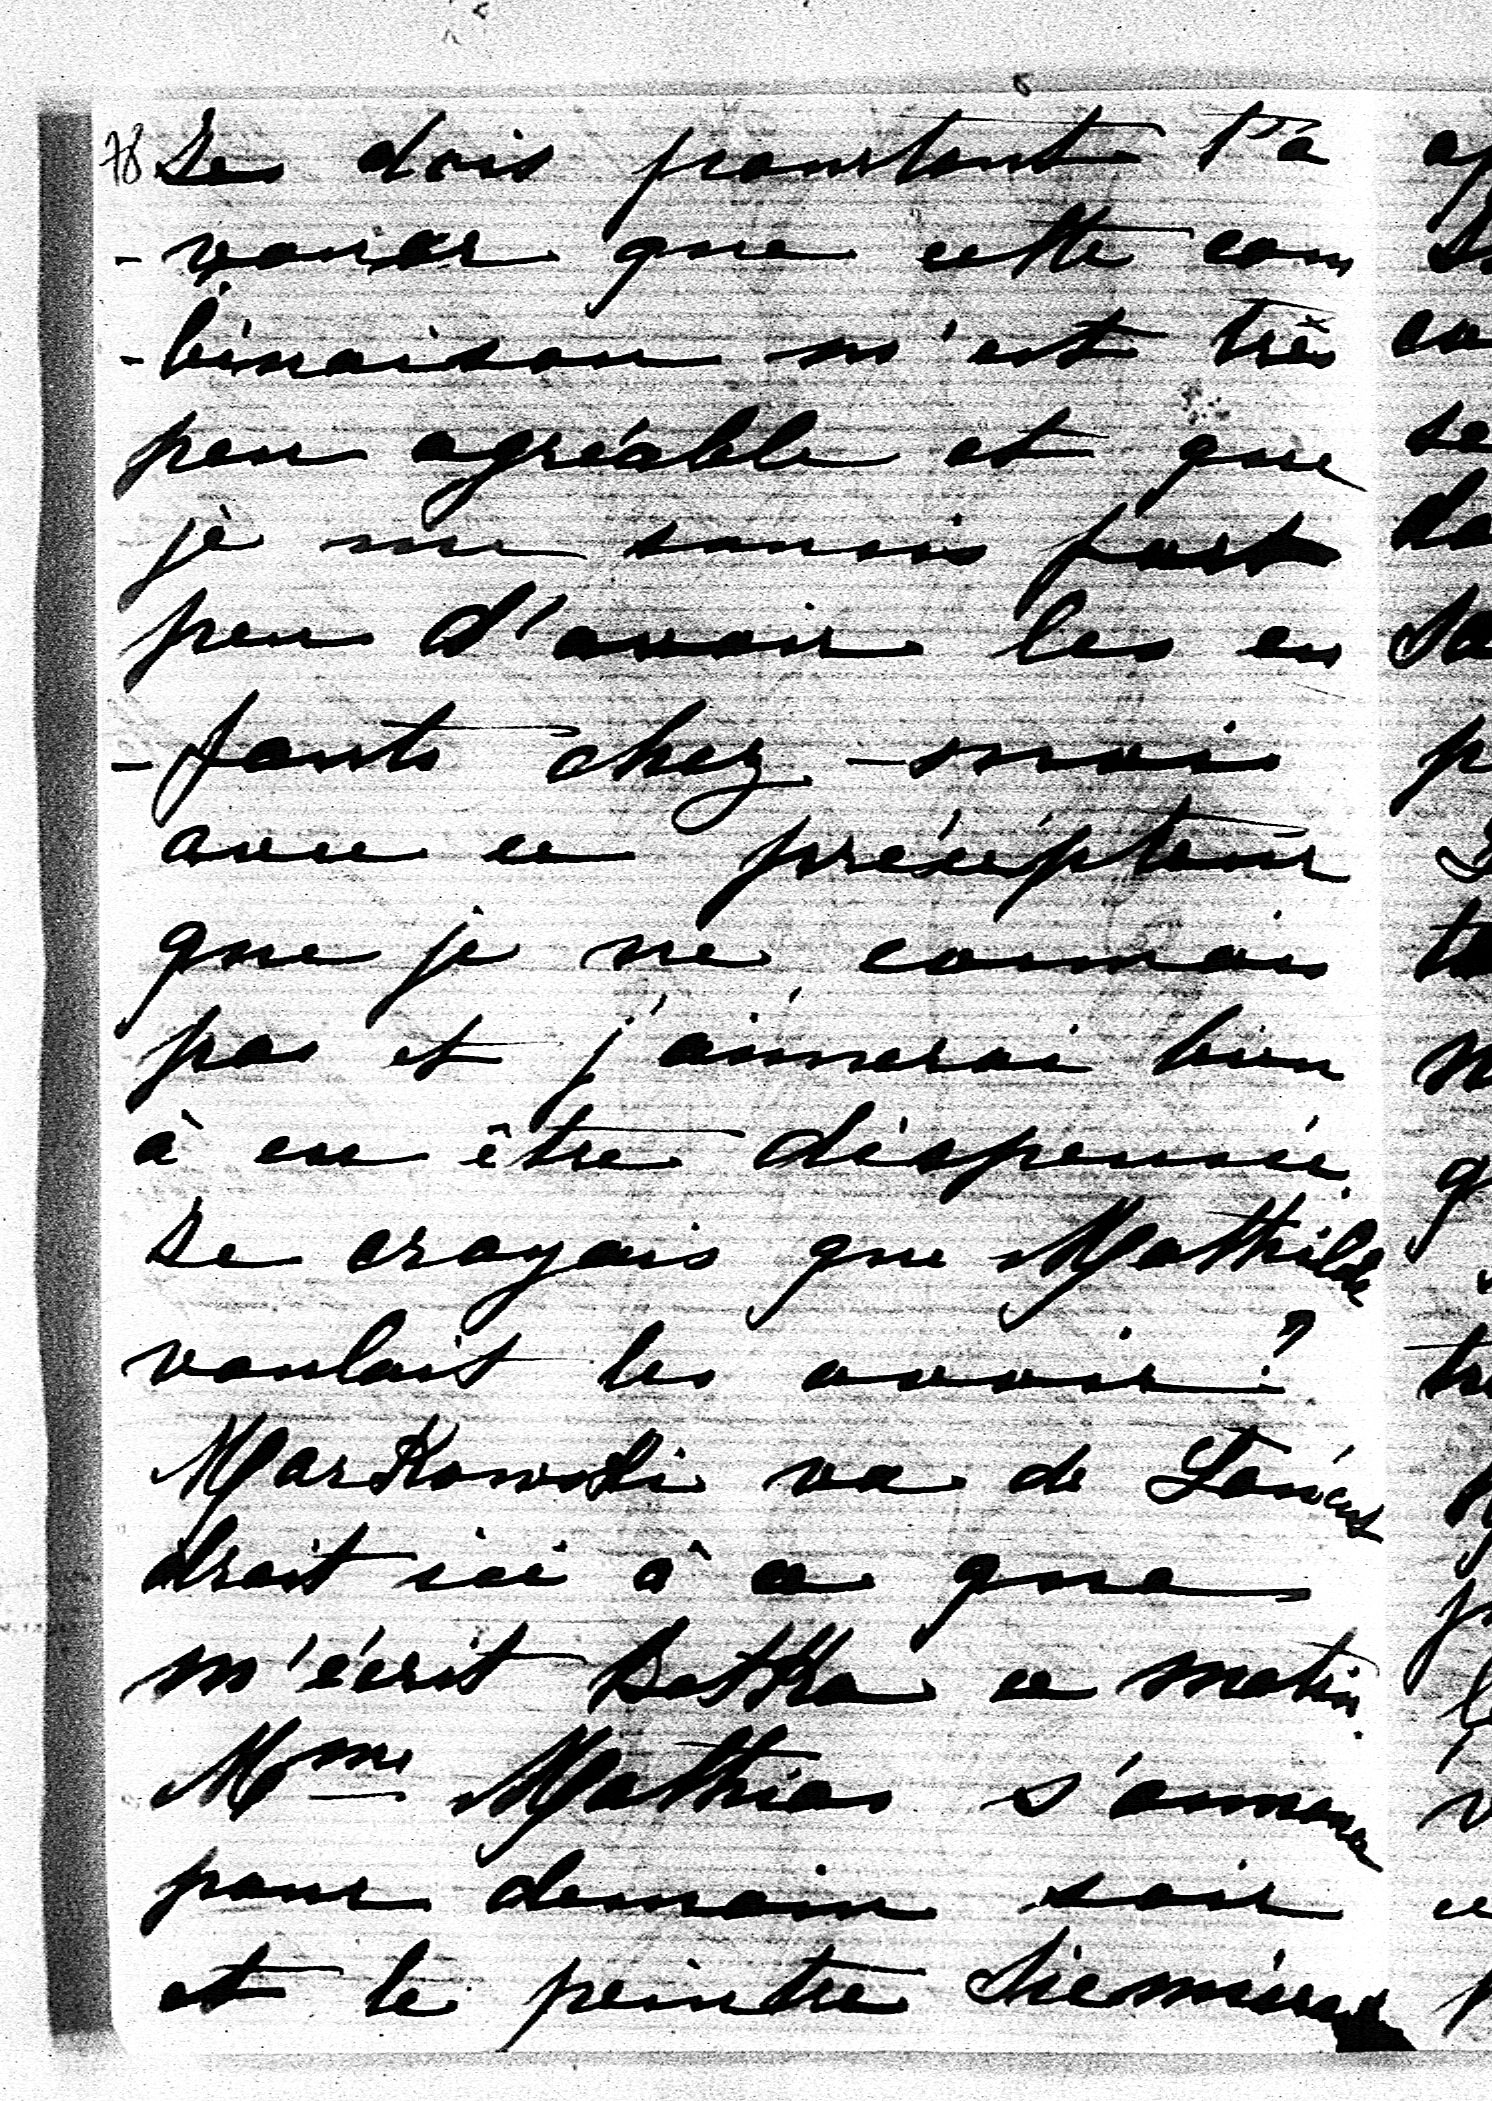 78 Je dois pourtant t'a
-vouer que cette com
-binaison m'est très
peu agréable et que
je me soucis fort
peu d'avoir les en
-fants chez-moi
avec ce précepteur
que je ne connais
pas et j'aimerai bien
à en être dispensée.
Je croyais que Mathilde
voulait les avoir?
Markowski va de Łańcut
droit ici à ce que
m'écrit Betka ce matin.
Mme Mathias s'annonce
pour demain soir
et le peintre